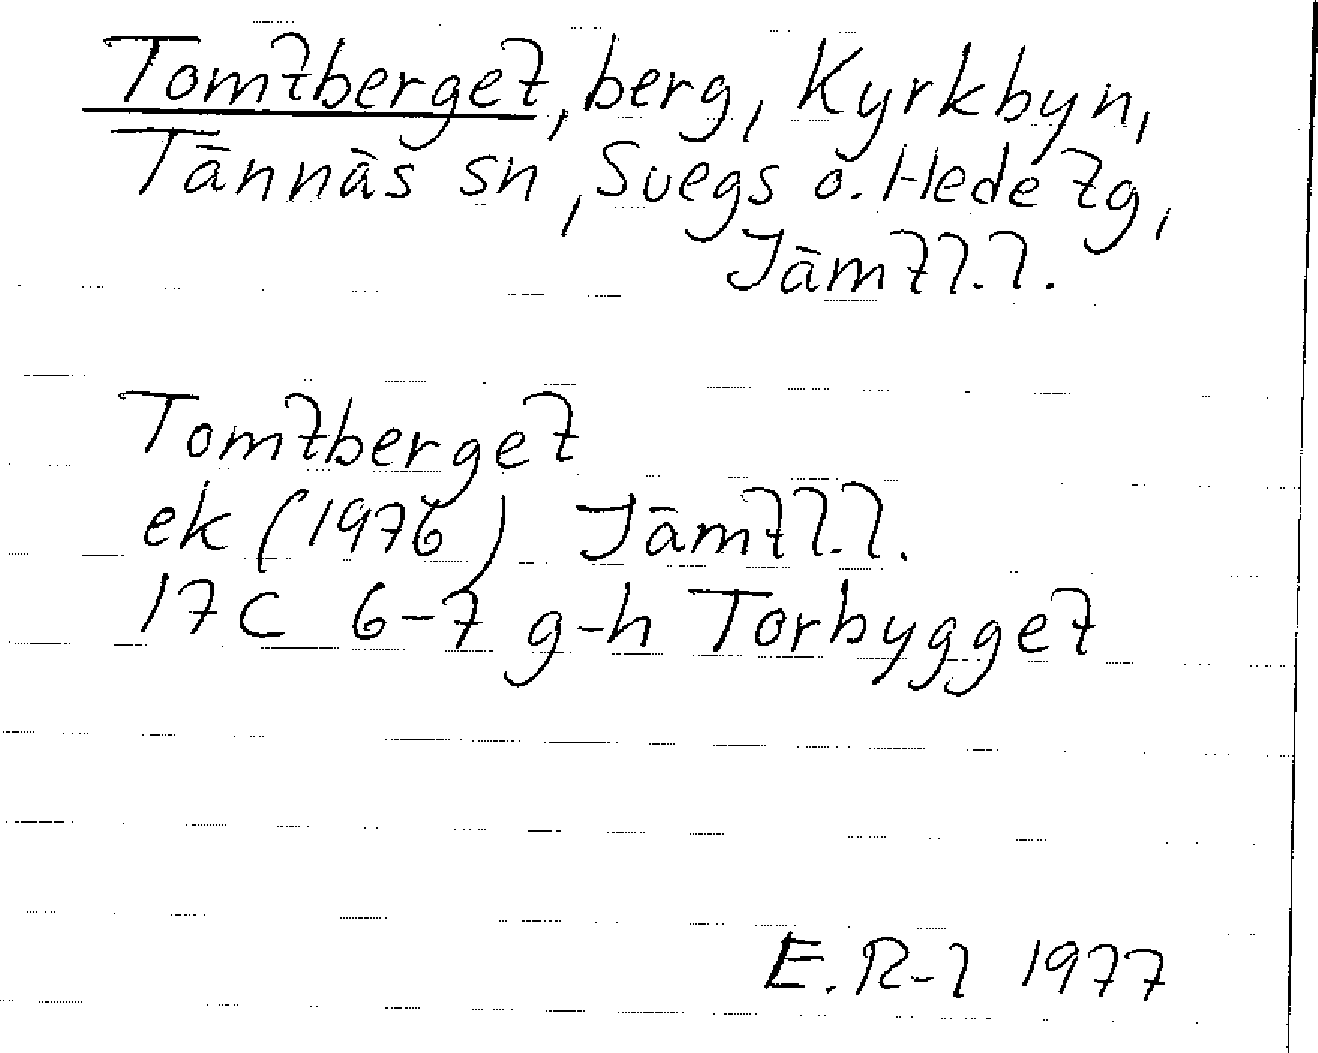 Tomtberget, berg, Kyrkbyn,
Tännäs sn, Svegs o. Hede tg,
Jämtl.l.
Tomtberget
ek (1976) Jämtl.l.
17C 6-7 g-h Torbygget
E. R-l 1977